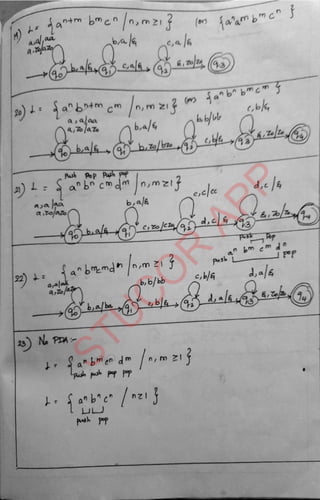 19) L = { aⁿ⁺ᵐ bᵐ cⁿ / n, m ≥ 1 } (or) { aⁿ aᵐ bᵐ cⁿ }
a, a/aa
a, z₀/az₀
b, a/ε
c, a/ε
q₀ b, a/ε q₁ c, a/ε q₂ ε, z₀/z₀ q₃
20) L = { aⁿ bⁿ⁺ᵐ cᵐ / n, m ≥ 1 } (or) { aⁿ bⁿ bᵐ cᵐ }
a, a/aa
a, z₀/az₀
b, a/ε
b, b/bb
c, b/ε
q₀ b, a/ε q₁ b, z₀/bz₀ q₂ c, b/ε q₃ ε, z₀/z₀ q₄
push pop push pop
21) L = { aⁿ bⁿ cᵐ dᵐ / n, m ≥ 1 }
a, a/aa
a, z₀/az₀
b, a/ε
c, c/cc
d, c/ε
q₀ b, a/ε q₁ c, z₀/cz₀ q₂ d, c/ε q₃ ε, z₀/z₀ q₄
push pop
push aⁿ bᵐ cᵐ dⁿ pop
22) L = { aⁿ bᵐ cᵐ dⁿ / n, m ≥ 1 }
a, a/aa
a, z₀/az₀
b, b/bb
c, b/ε
d, a/ε
q₀ b, a/ba q₁ c, b/ε q₂ d, a/ε q₃ ε, z₀/z₀ q₄
23) No PDA:-
L = { aⁿ bᵐ cⁿ dᵐ / n, m ≥ 1 }
push push pop pop
L = { aⁿ bⁿ cⁿ / n ≥ 1 }
push pop
STUCOR APP